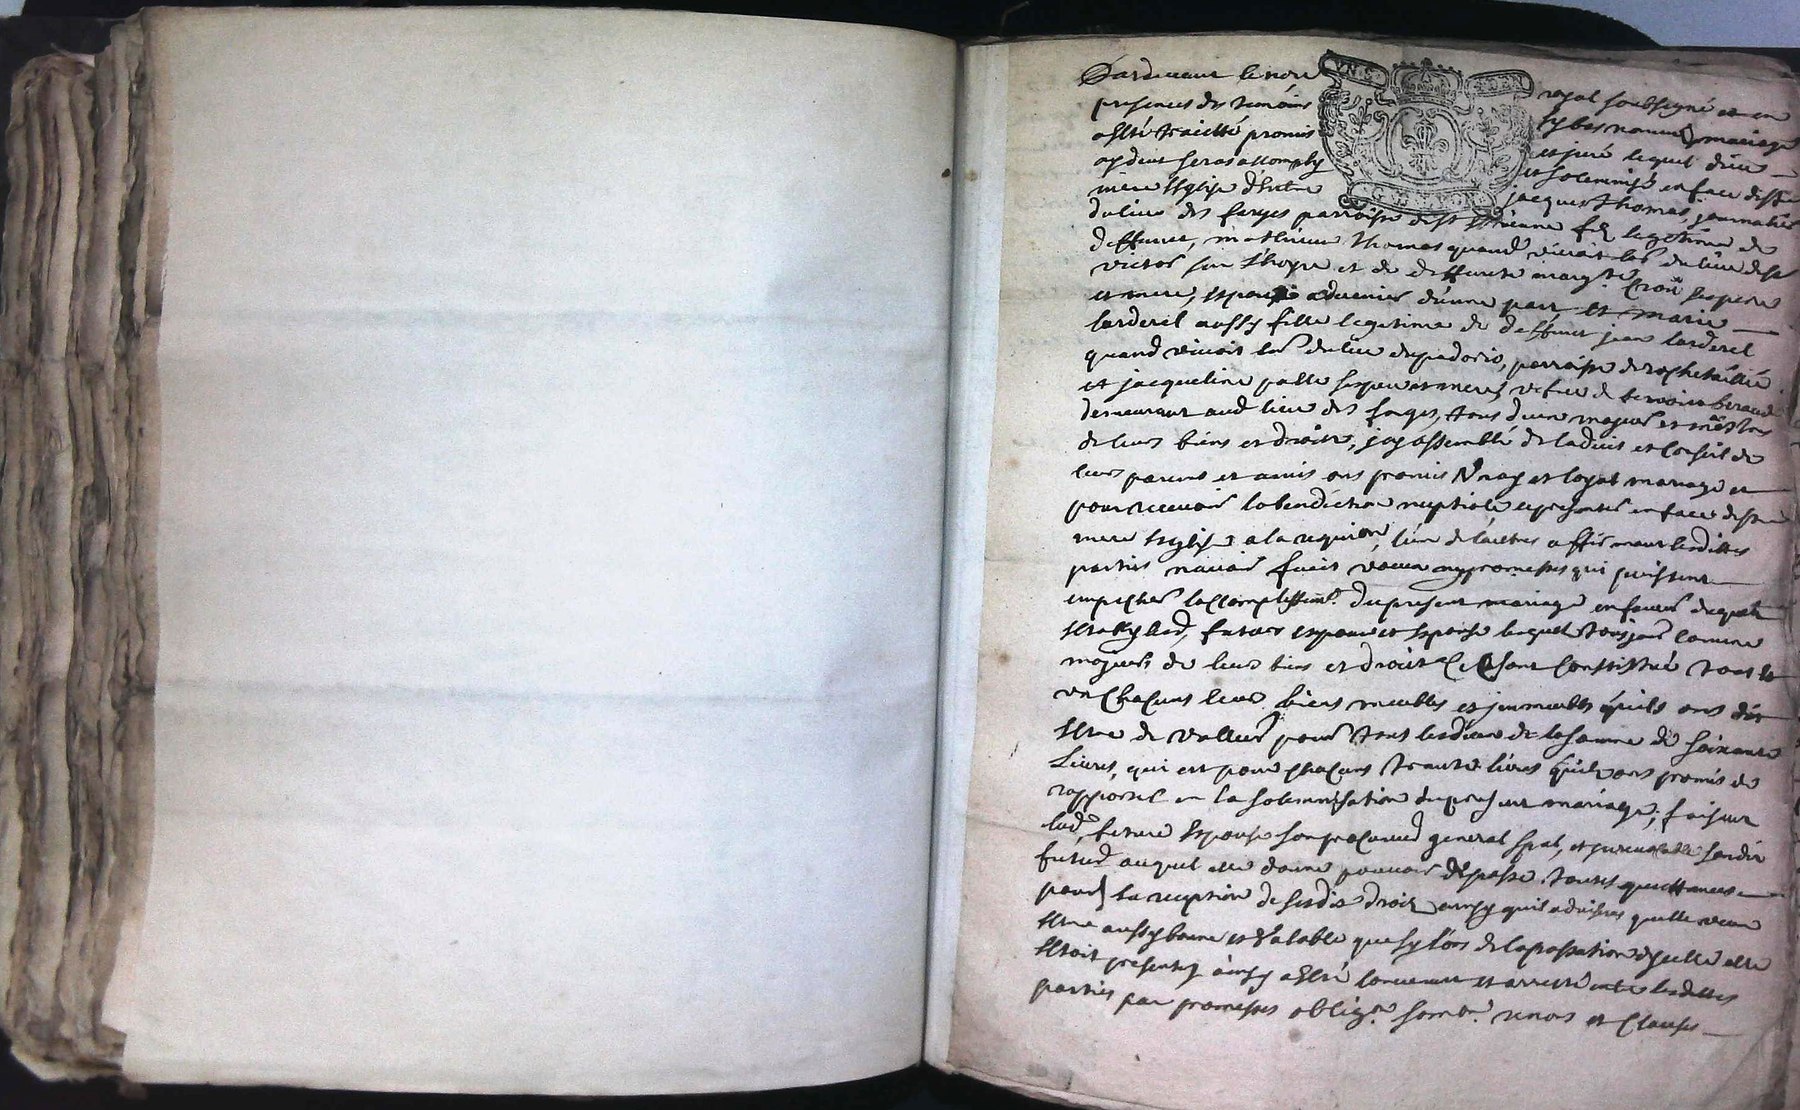 Pardevant le no.re royal soubsigné et en
presences des temoins sy bas nommés mariage
a esté traicté promis et juré lequel dieu
aydant seras accomply et solemnisé en face de s.te
mere Esglise d'Entre jacques Thomas, journalier
du lieu des forges parroisse de s.t Estienne filz legitime de
deffunct, mathieu Thomas quand vivoit lab.r du lieu de s.t
victor sur Rhoyre et de deffuncte marg.te ses pere
et mere, espoux advenir d'une part, et marie
larderel aussy fille legitime de deffunct jean larderel
quand vivoit lab.r du lieu parroisse de rochetaillié
et jacqueline palle ses pere et mere, vefve de beraud
demeurant aud lieu des forges, tous deux majeurs et m.res
de leurs biens et droits, de l'advis et conseil de
leurs parens et amis ont promis vray et loyal mariage et
pour recevoir la benediction nuptiale se presenter en face de s.te
mere Esglise a la requi.on l'un de l'autre affirmant lesdittes
parties n'avoir faict vœux ny promesses qui puissent
empescher l'accomplissem.t du present mariage en faveur duquel
lesd, futurs espoux et espouse lesquels comme
majeurs de leurs biens et droits se sont constitué tout
un chacuns leurs biens meubles et immeubles qu'ils ont dit
estre de valleur pour tous lesdeux de la somme de soixante
Livres, qui est pour chacuns trante livres qu'ils ont promis de
rapporter en la solemnisation du present mariage, faisant
lad, future Espouse son procureur general spal, et irrevocable sondit
futur auquel elle donne pouvoir de passe toutes quittances
pour la reception de sesdits droits ainsy qu'il advisera qu'elle veut
estre aussy bonne et valable que sy lors de la passation d'icelle elle
estoit presente, ainsy a esté convenu et arresté entre lesdittes
parties par promesses oblig.on renon et clauses